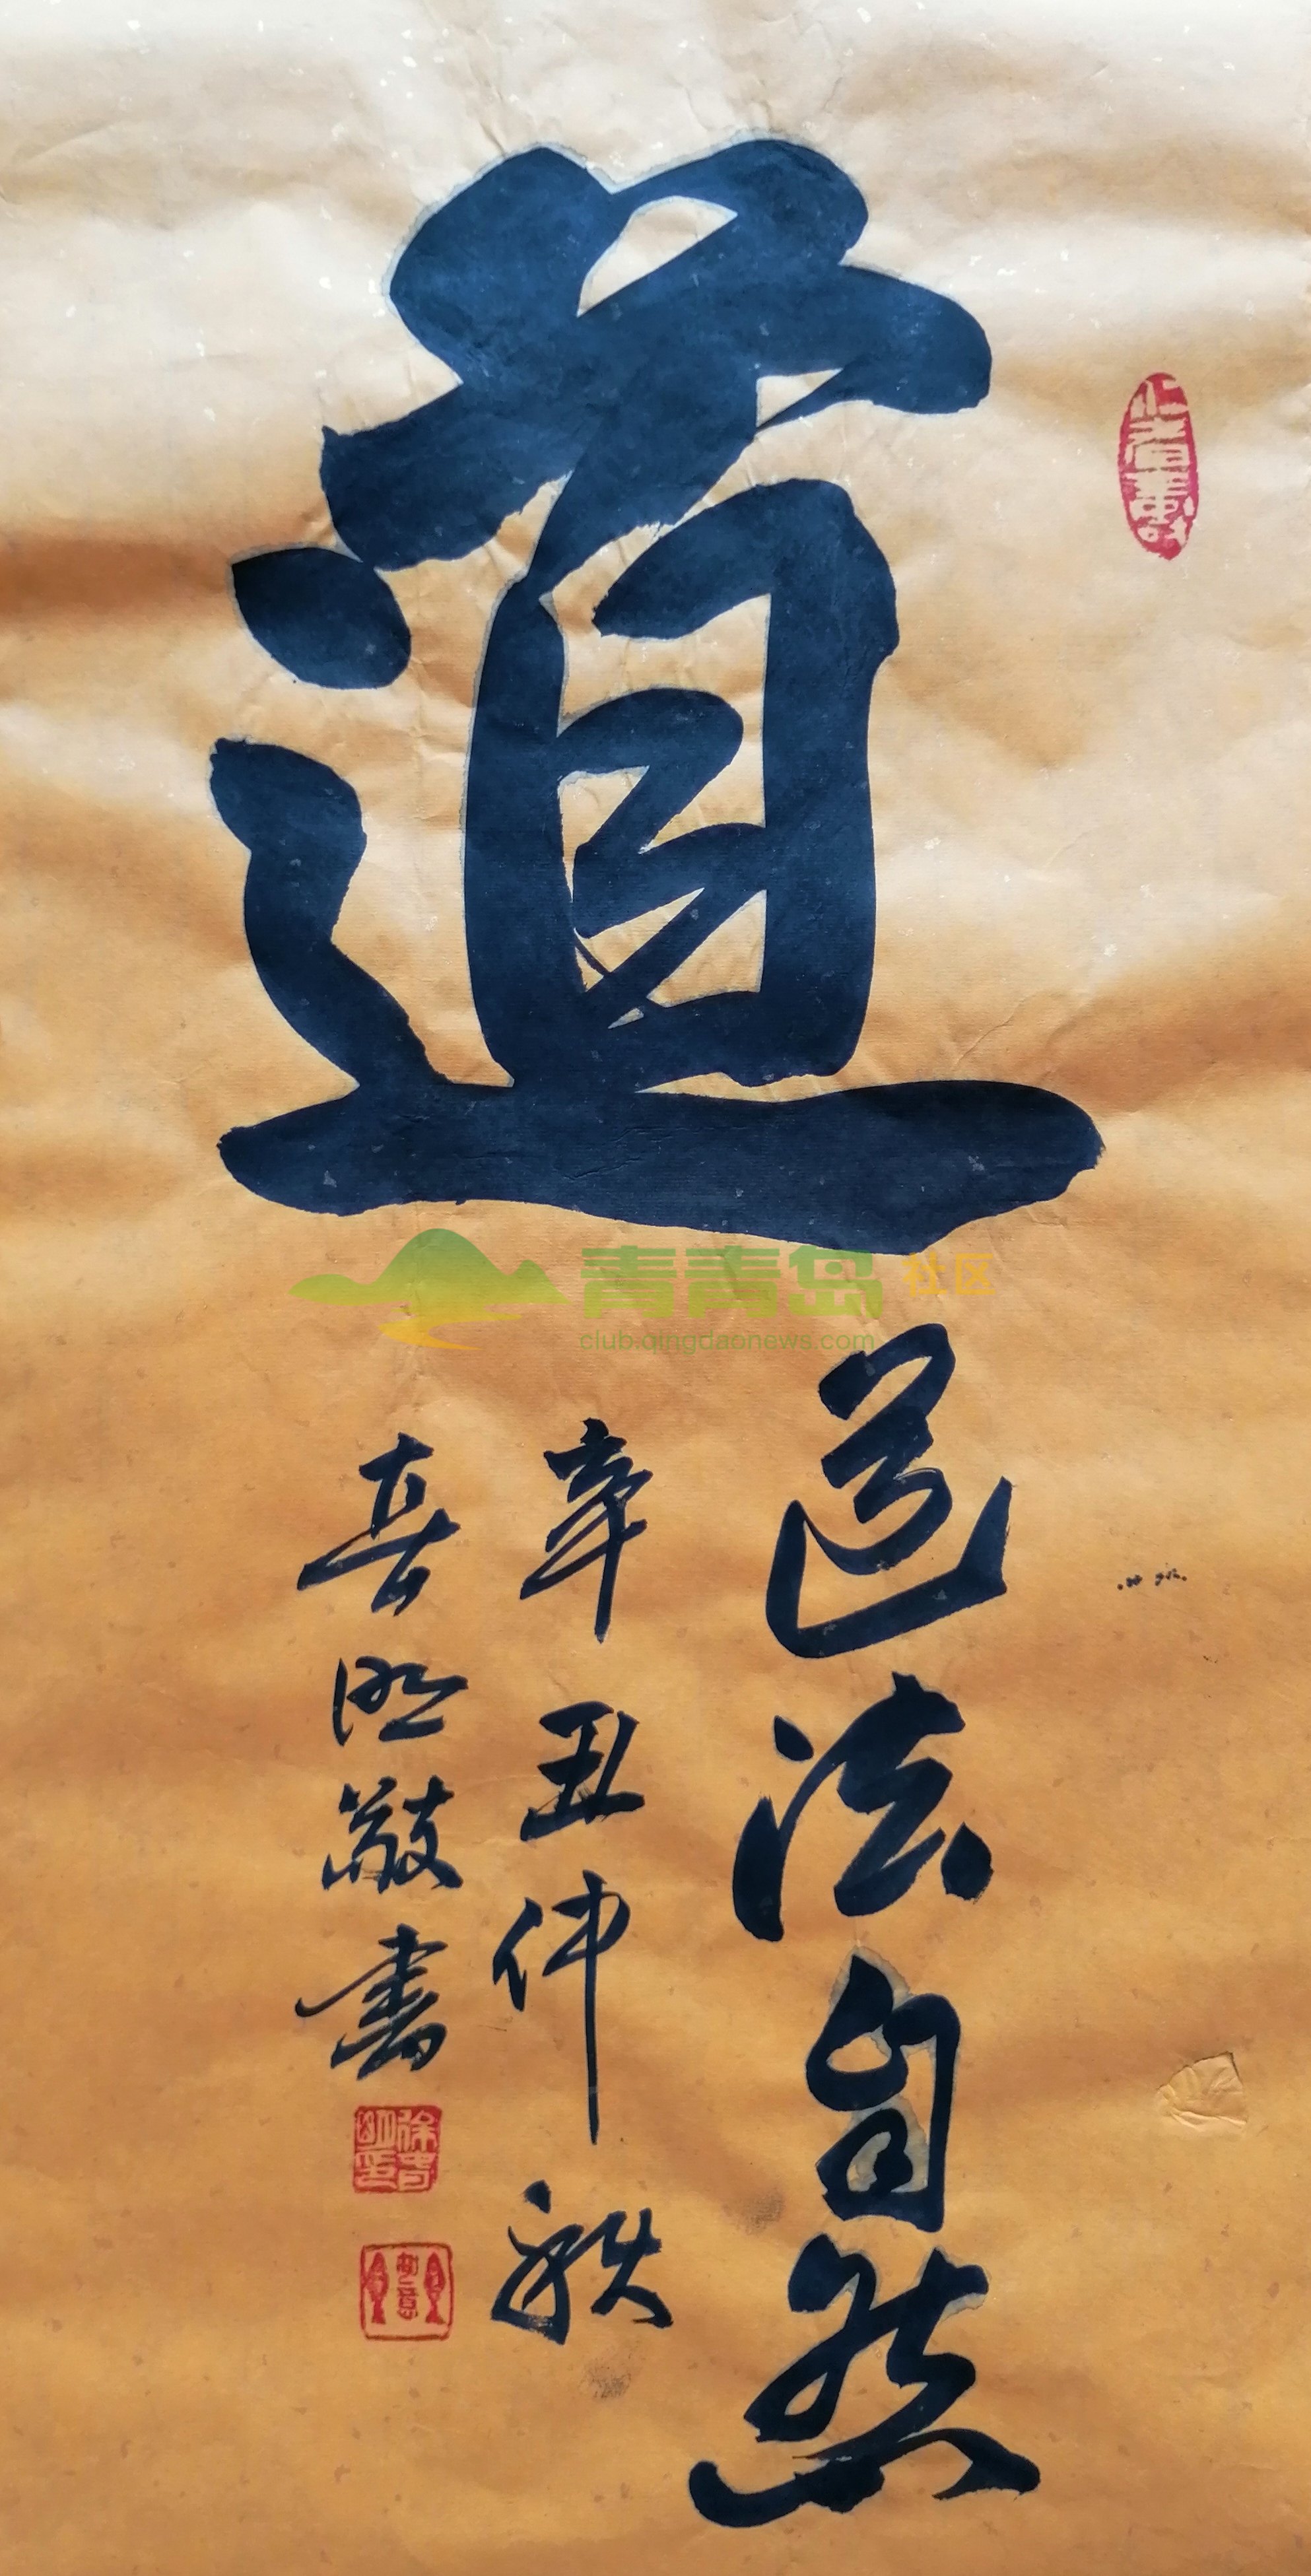 道
道法自然
辛丑仲秋
喜明敬書
青青岛 社区
club.qingdaonews.com